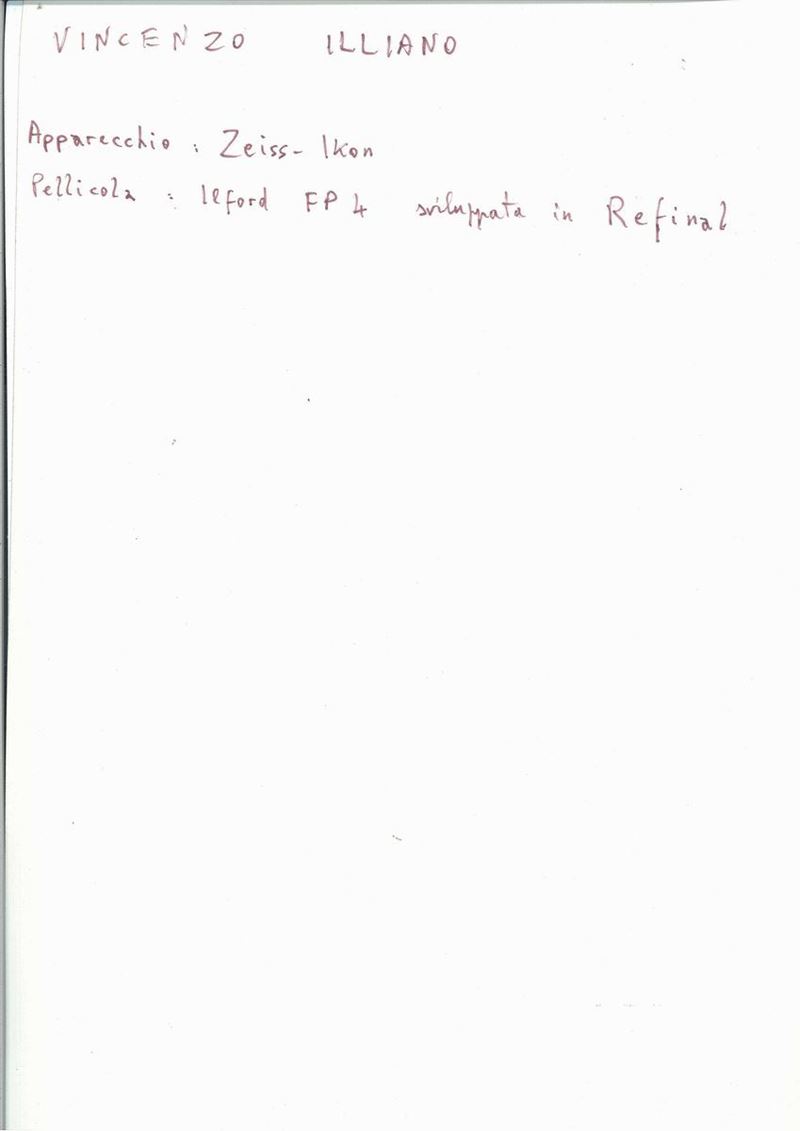 VINCENZO ILLIANO
Apparecchio : Zeiss-Ikon
Pellicola : Ilford FP4 sviluppata in Refinal